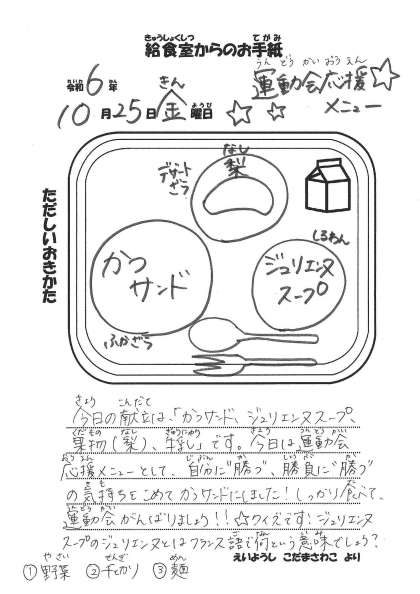 給食室からのお手紙
令和6年
10月25日金曜日
運動会応援☆
メニュー
☆ ☆
ただしいおきかた
デザートざら
梨
なし
しるわん
かつサンド
ジュリエンヌスープ
ふかざら
今日の献立は、「かつサンド、ジュリエンヌスープ、
果物(梨)、牛乳」です。今日は運動会
応援メニューとして、自分に"勝つ"、勝負に"勝つ"
の気持ちをこめてかつサンドにしました!しっかり食べて、
運動会がんばりましょう!!☆クイズです!ジュリエンヌ
スープのジュリエンヌとはフランス語で何という意味でしょう?
①野菜 ②千切り ③麺
えいようし こだまさわこ より